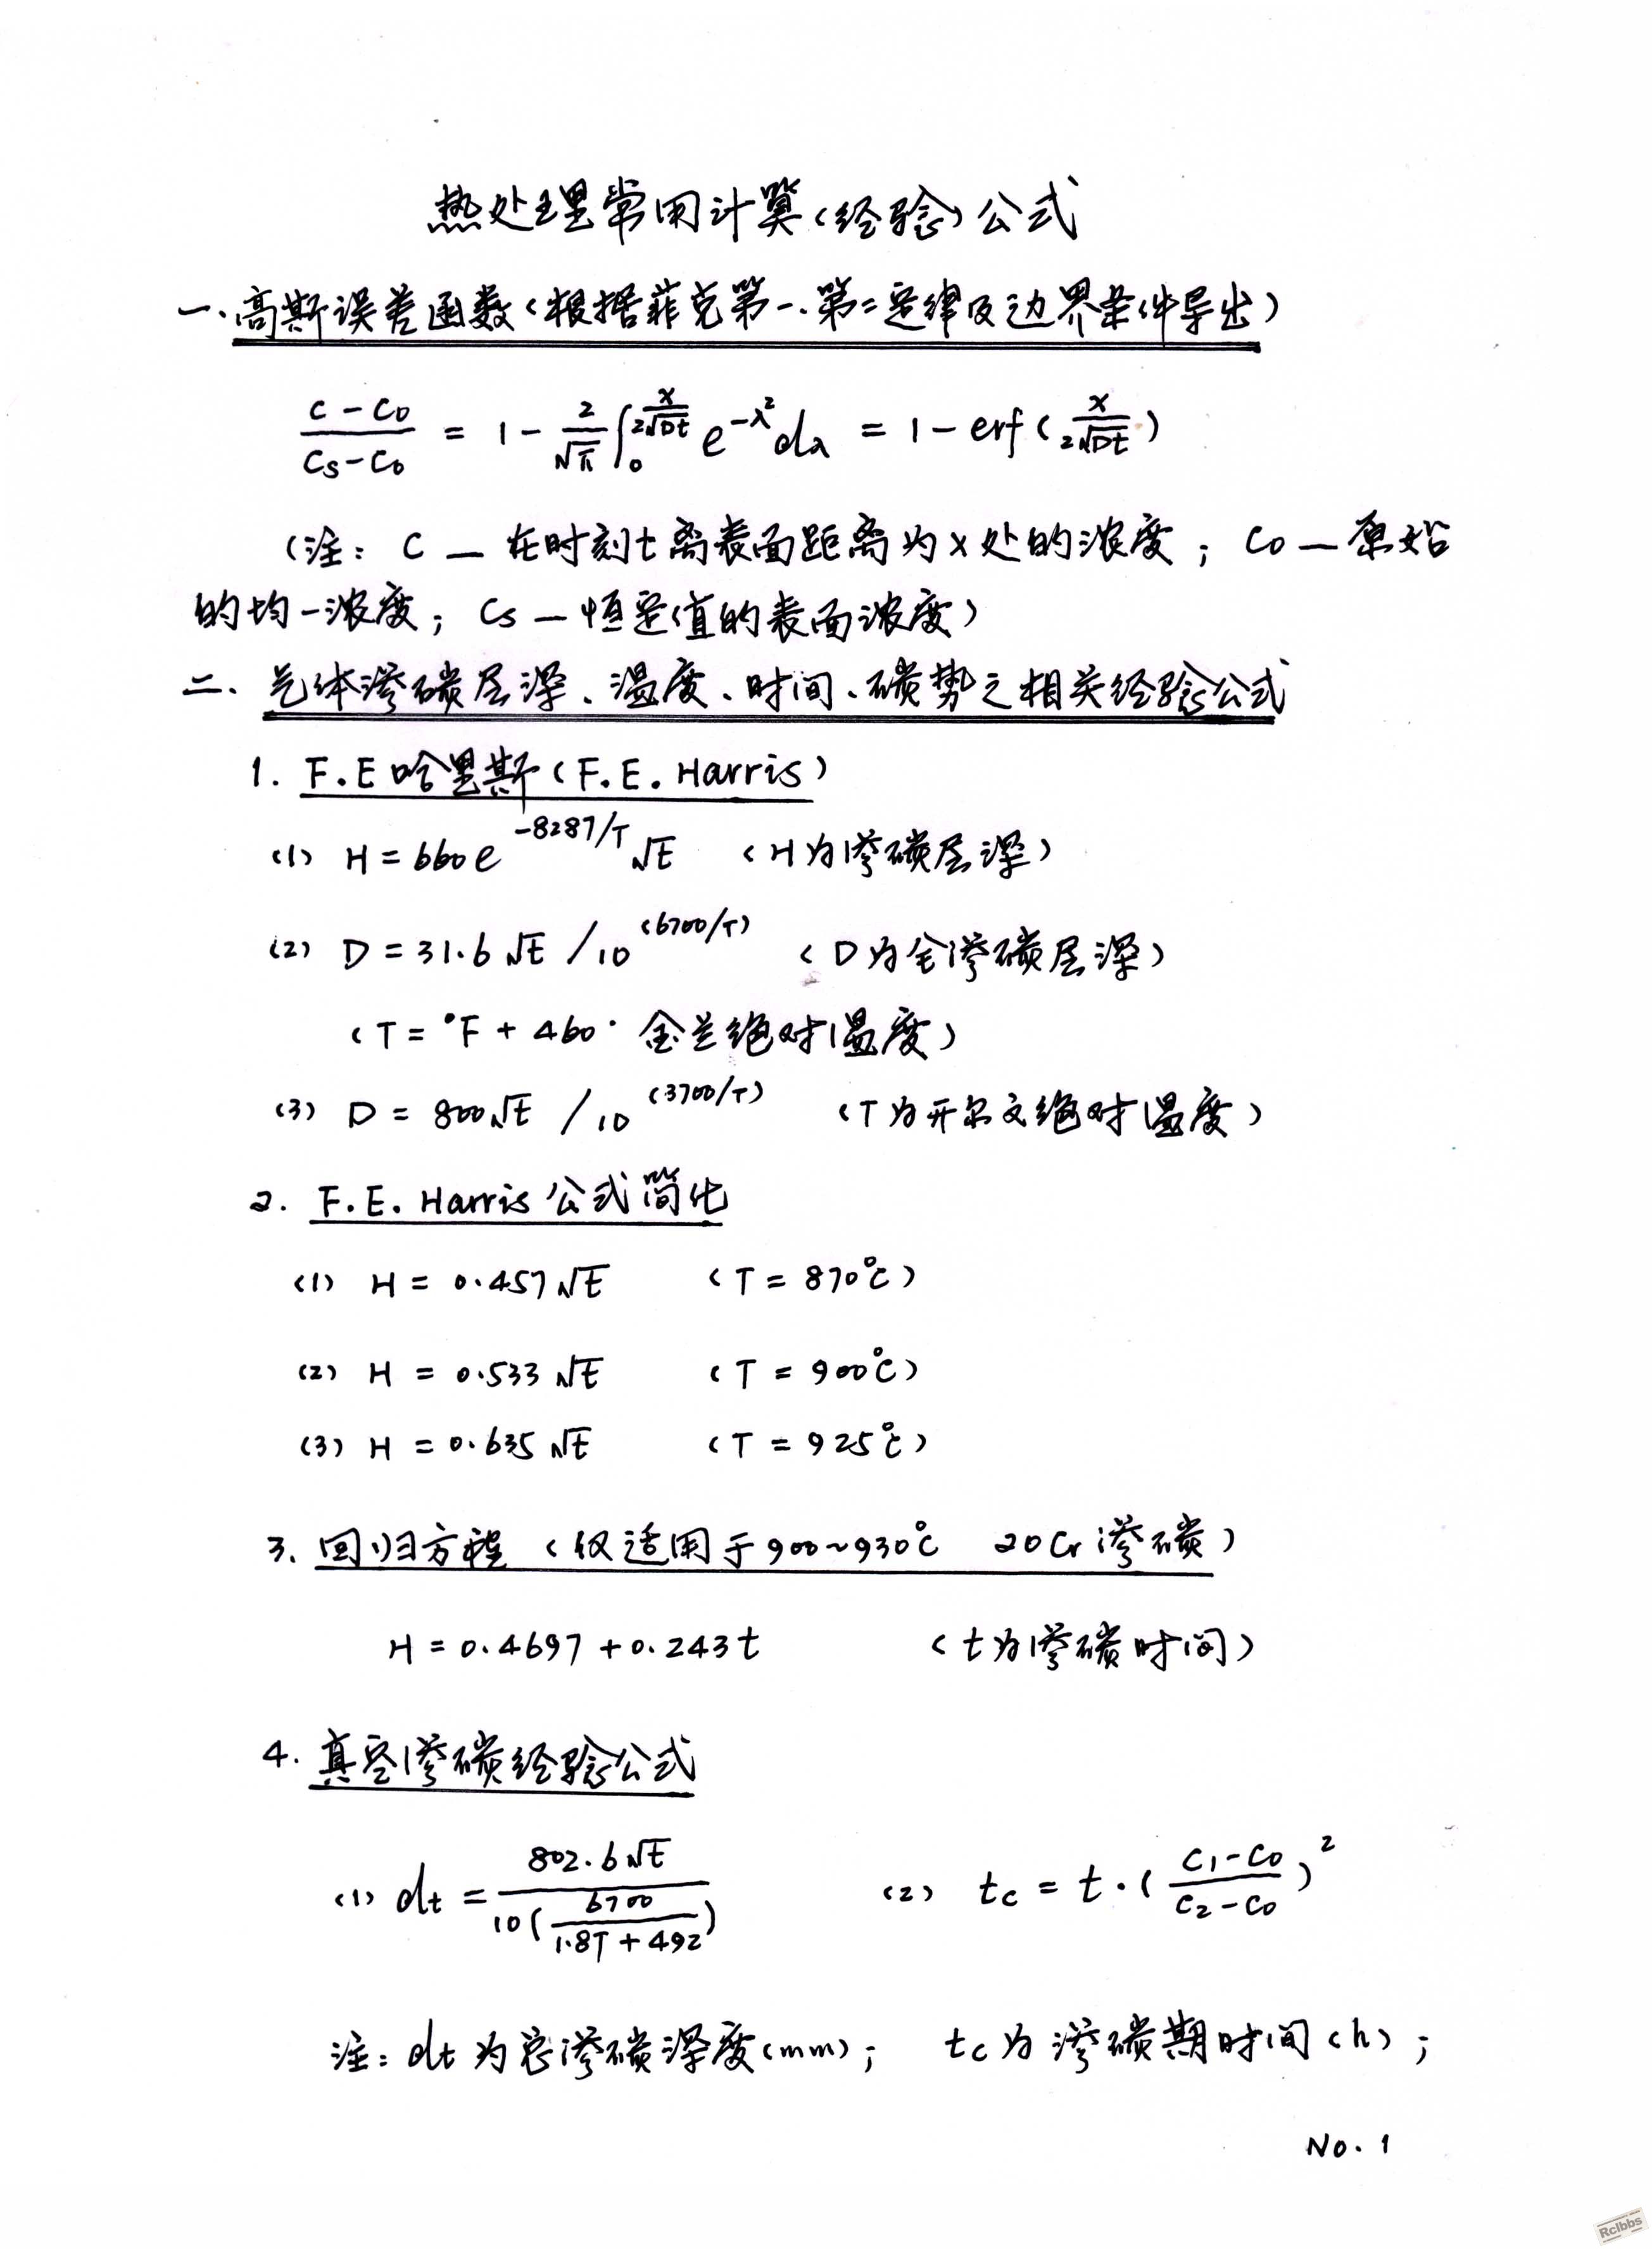 热处理常用计算(经验)公式
一.高斯误差函数(根据菲克第一.第二定律及边界条件导出)
(C-C₀)/(Cs-C₀) = 1 - 2/√π ∫₀^(x/2√Dt) e^(-λ²) dλ = 1 - erf(x/2√Dt)
(注: C — 在时刻t离表面距离为x处的浓度; C₀ — 原始
的均一浓度; Cs — 恒定值的表面浓度)
二、气体渗碳层深、温度、时间、碳势之相关经验公式
1. F.E哈里斯(F.E. Harris)
(1) H = 660e^(-8287/T) √t (H为渗碳层深)
(2) D = 31.6√t / 10^(6700/T) (D为全渗碳层深)
(T = °F + 460· 金兰绝对温度)
(3) D = 800√t / 10^(3700/T) (T为开尔文绝对温度)
2. F.E. Harris公式简化
(1) H = 0.457√t (T = 870℃)
(2) H = 0.533√t (T = 900℃)
(3) H = 0.635√t (T = 925℃)
3. 回归方程 (仅适用于900~930℃ 20Cr渗碳)
H = 0.4697 + 0.243t (t为渗碳时间)
4. 真空渗碳经验公式
(1) dt = 802.6√t / 10(6700/(1.8T + 492)) (2) tc = t·((C₁-C₀)/(C₂-C₀))²
注: dt为总渗碳深度(mm); tc为渗碳期时间(h);
No. 1
Rclbbs